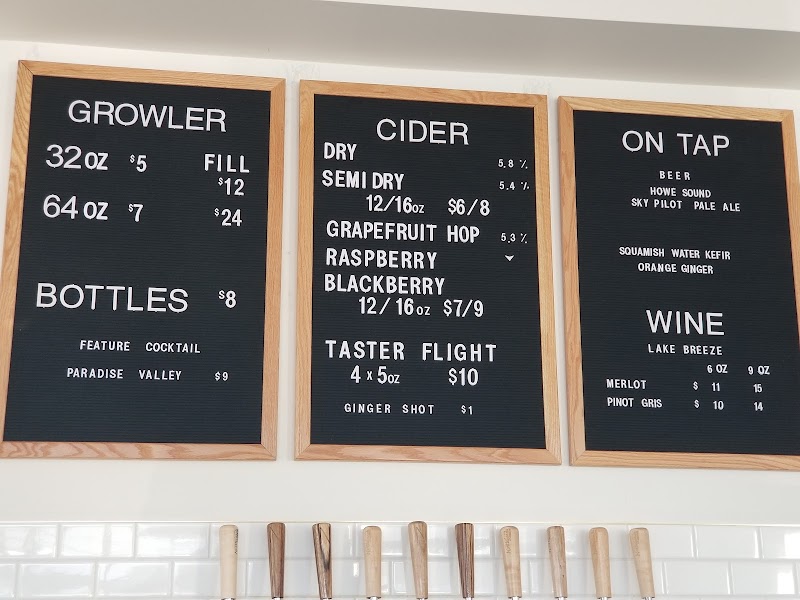 GROWLER
32oz $5 FILL
$12
64oz $7 $24
BOTTLES $8
FEATURE COCKTAIL
PARADISE VALLEY $9
CIDER
DRY 5.8 %
SEMI DRY 5.4 %
12/16oz $6/8
GRAPEFRUIT HOP 5.3 %
RASPBERRY
BLACKBERRY
12/16oz $7/9
TASTER FLIGHT
4 x 5oz $10
GINGER SHOT $1
ON TAP
BEER
HOWE SOUND
SKY PILOT PALE ALE
SQUAMISH WATER KEFIR
ORANGE GINGER
WINE
LAKE BREEZE
6 OZ 9 OZ
MERLOT $ 11 15
PINOT GRIS $ 10 14